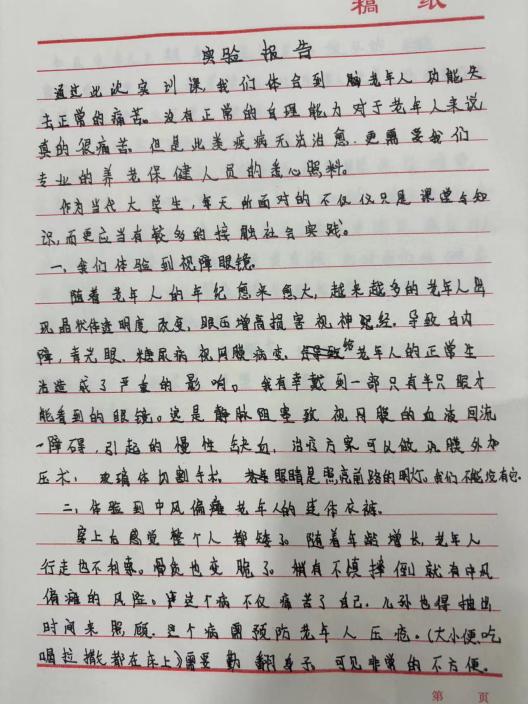 稿 纸
实验报告
通过此次实训课,我们体会到 脑老年人 功能失
去正常的痛苦。没有正常的自理能力对于老年人来说
真的很痛苦。但是此类疾病无法治愈,更需要我们
专业的养老保健人员的悉心照料。
作为当代大学生,每天所面对的不仅仅只是课堂与知
识,而更应当有较多的接触社会实践。
一、我们体验到视障眼镜。
随着老年人的年纪愈来愈大,越来越多的老年人出
现晶状体透明度改变,眼压增高损害视神经。导致白内
障,青光眼、糖尿病视网膜病变,给老年人的正常生
活造成了严重的影响。我有幸戴到一部只有半只眼才
能看到的眼镜。这是静脉阻塞致视网膜的血液回流
障碍,引起的慢性缺血,治疗方案可以做巩膜外加
压术,玻璃体切割手术。眼睛是照亮前路的明灯。我们不能没有它。
二、体验到中风偏瘫老年人的连体衣裤。
穿上后感觉整个人都矮了。随着年龄增长,老年人
行走也不利索。骨质也变脆了。稍有不慎摔倒就有中风
偏瘫的风险。这个病不仅痛苦了自己,儿孙也得抽出
时间来照顾。这个病需预防老年人压疮。(大小便,吃
喝拉撒都在床上)需要勤翻身子,可见非常的不方便。
第 页